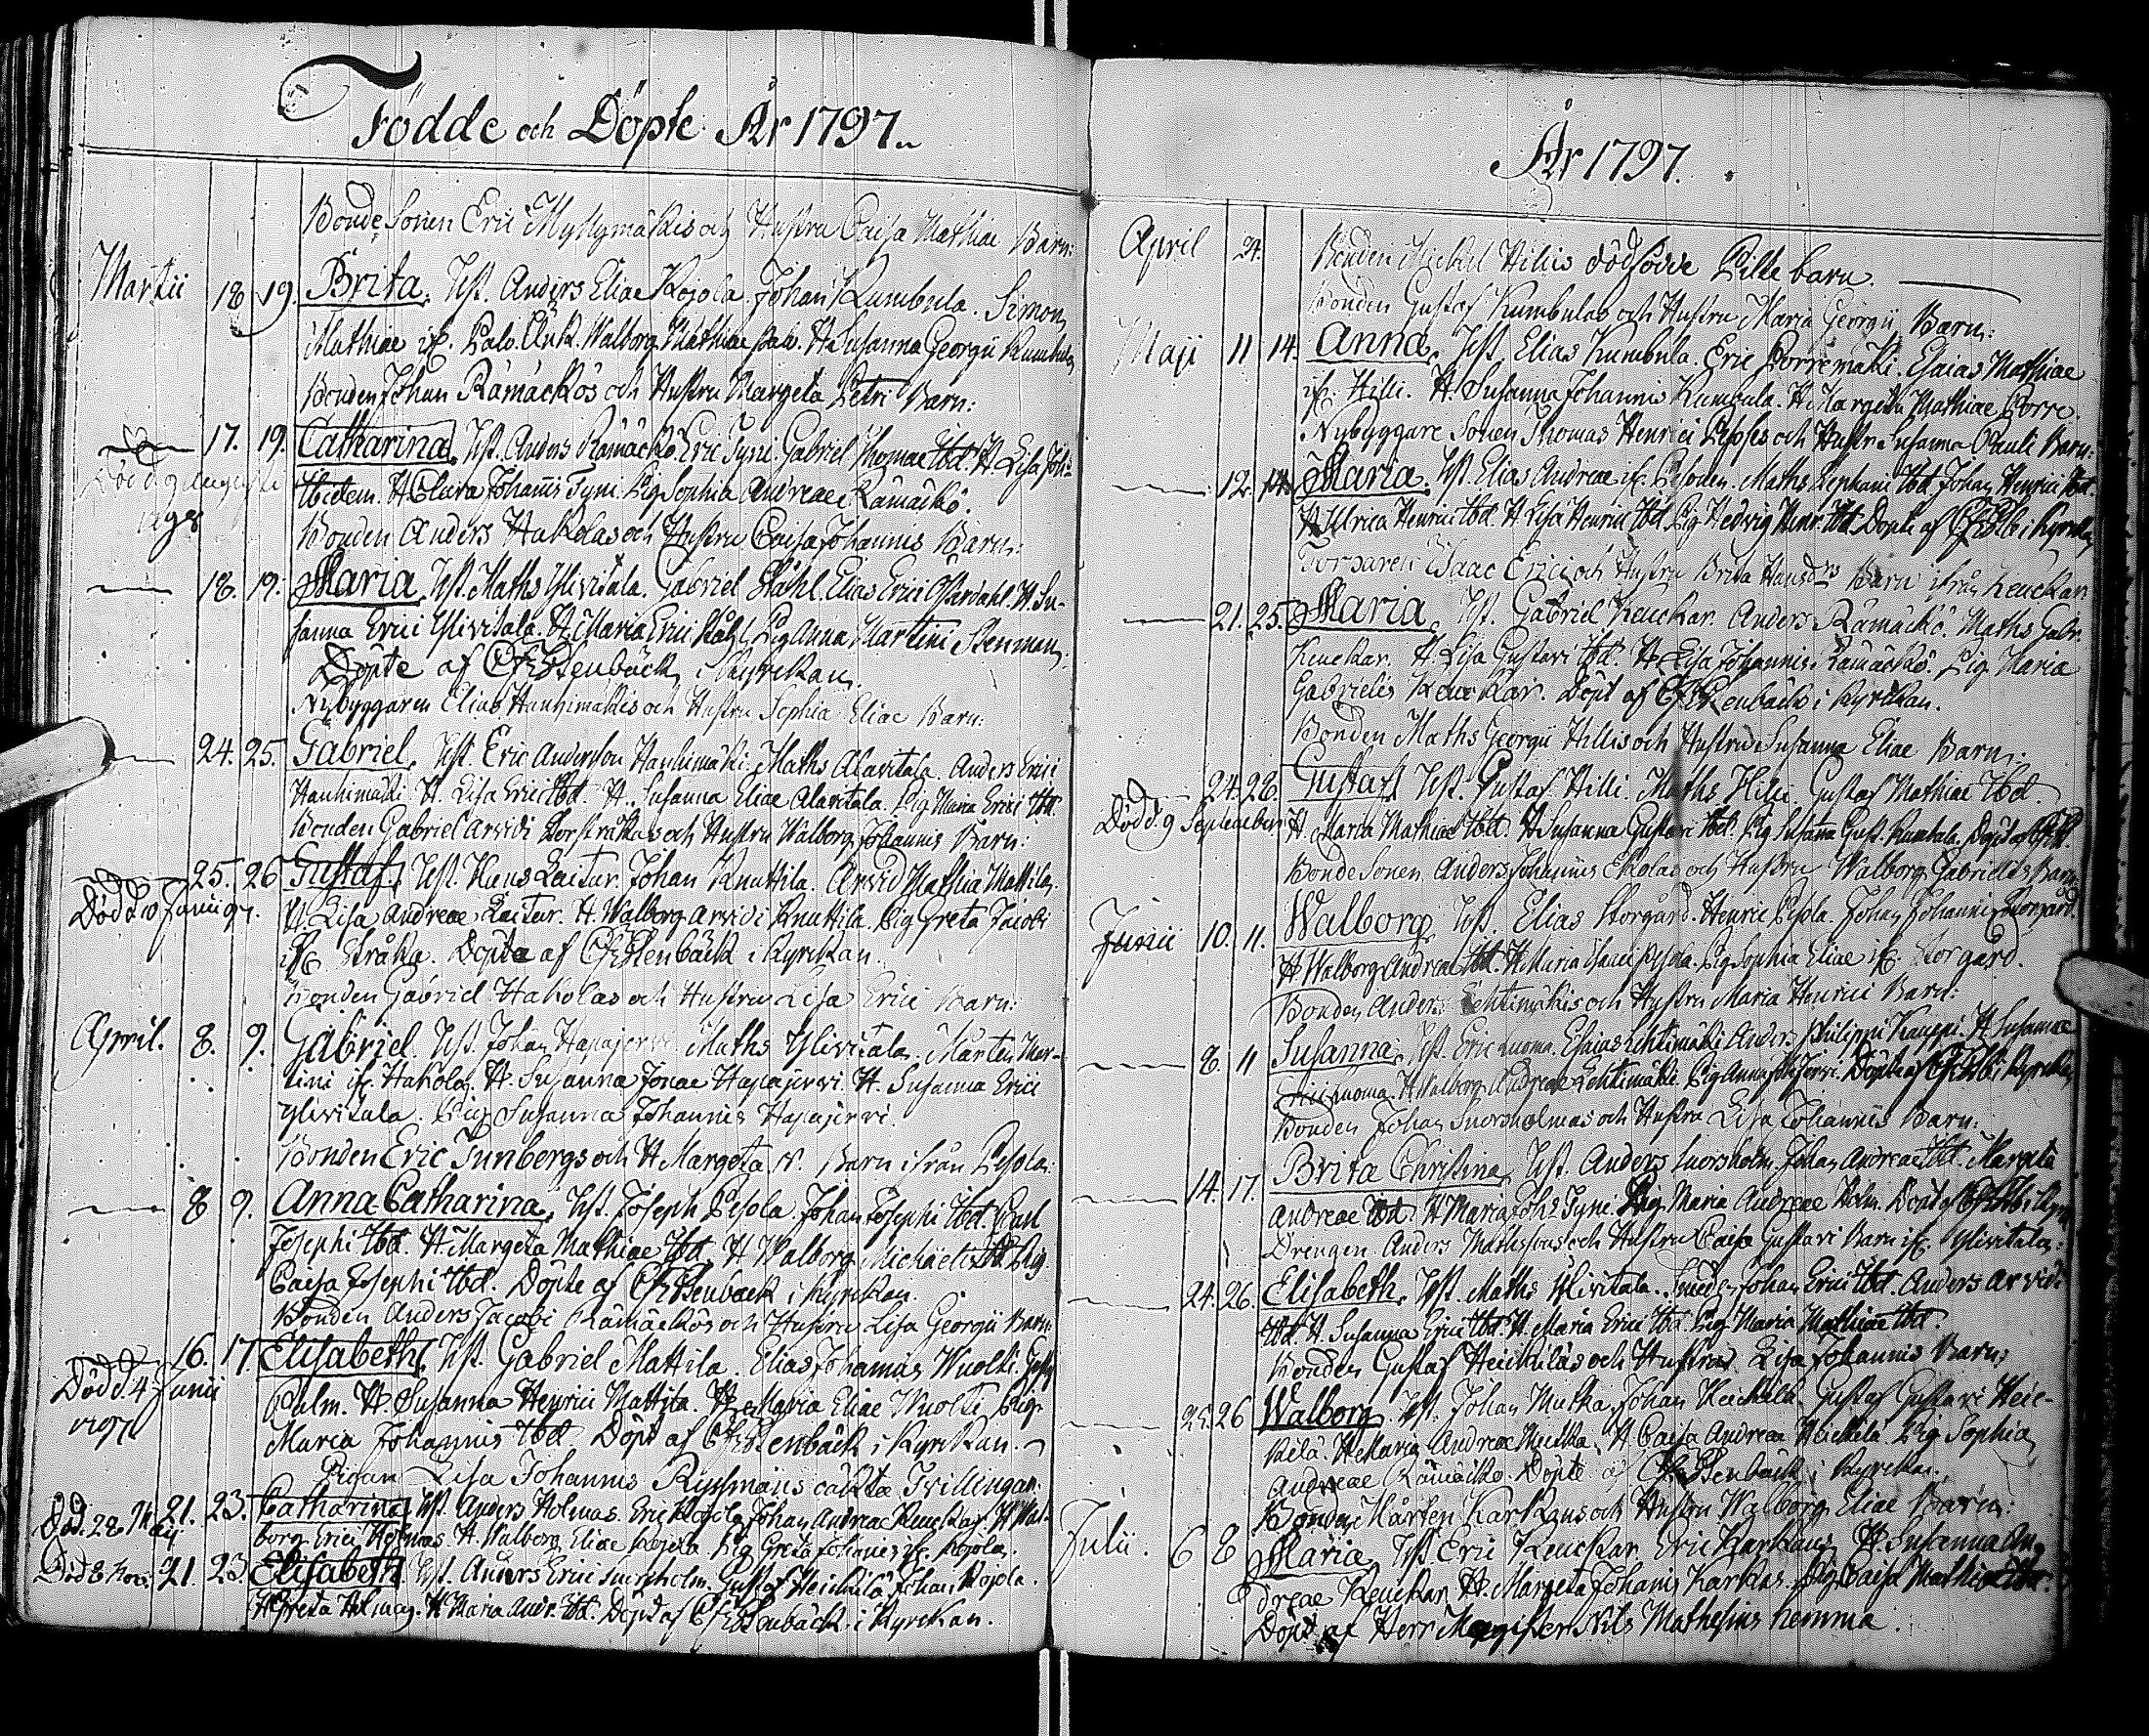 Födde och Döpte År 1797.
Bonde Sonen Eric Myllymäkis och Hustru Caisa Mathiae Barn:
Martii 18 19. Brita. Test. Anders Eliae Kojola. Johan Kumbula. Simon
Mathiae Walborg Mathiae H. Susanna Georgii Kumbula
Bonden Johan Rämäckös och Hustru Margeta Petri Barn:
17. 19. Catharina. Test. Anders Rämäckö. Eric Tyni. Gabriel Thomae Ibd. H. Lisa Joh:
Död d. 9 Augusti Ibidem. H. Clara Johannis Tyni. Pig. Sophia Andreae Rämäckö.
1798
Bonden Anders Hakolas och Hustru Caisa Johannis Barn:
18. 19. Maria. Test. Maths Ylivitala. Gabriel Ståhl. Elias Erici H. Su-
sanna Erici Ylivitala. H. Maria Erici Ståhl. Pig. Anna Martini Stenman.
Döpte af C. F. Stenbäck i Kyrckan.
Nybyggaren Elias Hanhimäkis och Hustru Sophia Eliae Barn:
24. 25. Gabriel. Test. Eric Andersson Hanhimäki. Maths Alavitala. Anders Erici
Hanhimäki. H. Lisa Erici Ibd. H. Susanna Eliae Alavitala. Pig. Maria Erici Ibd.
Bonden Gabriel Arvidi Storstråkas och Hustru Walborg Johannis Barn:
25. 26 Gustaf. Test. Hans Kaitur. Johan Knuttila. Arvid Mathiae Mattila.
Död d. 10 Junii 97. H. Lisa Andreae Kaitur. H. Walborg Arvidi Knuttila. Pig. Greta Jacobi
Stråka. Döpte af C. F. Stenbäck i Kyrckan.
Bonden Gabriel Hakolas och Hustru Lisa Erici Barn:
April. 8. 9. Gabriel. Test. Johan Hapajervi. Maths Ylivitala. Mårten Mar-
tini if. Hakola. H. Susanna Jonae Hapajervi. H. Susanna Erici
Ylivitala. Pig. Susanna Johannis Hapajervi.
Bonden Eric Tunbergs och H. Margeta N. Barn ifrån Pesola:
8 9. Anna Catharina. Test. Joseph Pesola. Johan Josephi Ibd. Carl
Josephi Ibd. H. Margeta Mathiae Ibd. H. Walborg Michaelis Ibd. Pig.
Caisa Josephi Ibd. Döpte af C. F. Stenbäck i Kyrckan.
Bonden Anders Jacobi Rämäckös och Hustru Lisa Georgii Barn:
16. 17. Elisabeth. Test. Gabriel Mattila. Elias Johannis Wuolti. Gust.
Död d. 4 Junii Palm. H. Susanna Henrici Mattila. H. Maria Eliae Wuolti. Pig.
1797 Maria Johannis Ibd. Döpt af C. F. Stenbäck i Kyrckan.
Pigan Lisa Johannis Ryssmans oäkta Tvillingar.
Död 28 Maij 21. 23. Catharina. Test. Anders Holmas. Eric Kojola. Johan Andreae Keuckar. H. Wal-
borg Erici Holmas. H. Walborg Eliae Kojola. Pig. Greta Johannis if. Kojola.
Död 8 Nov: 21. 23. Elisabeth. Test. Anders Erici Snorsholm. Gustaf Heickilä. Johan Kojola.
H. Greta Holmas. H. Maria Andr. Ibd. Döpt af C. F. Stenbäck i Kyrckan.
År 1797.
April 24. Bonden Mickel Hillis dödfödde Pilte barn.
Bonden Gustaf Kumbulas och Hustru Maria Georgii Barn:
Maji 11 14. Anna. Test. Elias Kumbula. Eric Porremäki. Esaias Mathiae
if. Hilli. H. Susanna Johannis Kumbula. H. Margeta Mathiae Porre.
Nybyggare Sonen Thomas Henrici och Hustru Susanna Pauli Barn:
12. 14. Maria. Test. Elias Andreae if. Maths Stephani Ibd. Johan Henrici Ibd.
H. Ulrica Henrici Ibd. H. Lisa Henrici Ibd. Pig. Hedvig Henr. Ibd. Döpte af C. F. Stb. i Kyrckan
Torparen Isaac Erici och Hustru Brita Hansdrs Barn ifrån Keuckar
21. 25. Maria. Test. Gabriel Keuckar. Anders Rämäckö. Maths Gabr.
Keuckar. H. Lisa Gustavi Ibd. H. Lisa Johannis Rämäckö. Pig. Maria
Gabrielis Keuckar. Döpt af C. F. Stenbäck i Kyrckan.
Bonden Maths Georgii Hillis och Hustru Susanna Eliae Barn:
24. 28. Gustaf. Test. Gustaf Hilli. Maths Hilli. Gustaf Mathiae Ibd.
Död d. 9 September H. Maria Mathiae Ibd. H. Susanna Gustavi Ibd. Pig. Susanna Gust. Kumbula.
Bonde Sonen Anders Johannis Ekolas och Hustru Walborg Gabrielis Barn
Junii 10. 11. Walborg. Test. Elias Storgård. Henric Pesola. Johan Johannis Storgård.
H. Walborg Andreae Ibd. H. Maria Isaci Pesola. Pig. Sophia Eliae if. Storgård.
Bonden Anders Lehtimäkis och Hustru Maria Henrici Barn:
8. 11 Susanna. Test. Eric Luoma. Esaias Lehtimäki. Anders Philippi Kauppi. H. Susanna
Erici Luoma. H. Walborg Andreae Lehtimäki. Pig. Anna Döpte af C. F. Stb. i Kyrckan
Bonden Johan Snorsholmas och Hustru Lisa Johannis Barn:
14. 17. Brita Christina. Test. Anders Snorsholm. Johan Andreae Ibd. Margeta
Andreae Ibd. H. Maria Johs Tyni. Pig. Maria Andreae Holm. Döpt af C. F. Stb. i Kyrc
Drengen Anders Mathssons och Hustru Caisa Gustavi Barn if. Ylivitala:
24. 26. Elisabeth. Test. Maths Ylivitala. Smeden Johan Erici Ibd. Anders Arvidi
Ibd. H. Susanna Erici Ibd. H. Maria Erici Ibd. Pig. Maria Mathiae Ibd.
Bonden Gustaf Heickiläs och Hustrus Lisa Johannis Barn:
25. 26 Walborg. Test. Johan Mutka. Johan Heickilä. Gustaf Gustavi Heic-
kilä. H. Maria Andreae Mutka. H. Caisa Andreae Heickilä. Pig. Sophia
Andreae Rämäckö. Döpte af C. F. Stenbäck i Kyrckan.
Bonden Mårten Karkaus och Hustru Walborg Eliae Barn:
Julii. 6 8 Maria. Test. Eric Keuckar. Eric Karkaus. H. Susanna An-
dreae Keuckar. H. Margeta Johannis Karkas. Pig. Caisa Mathiae Ibd.
Döpt af Herr Magister Nils Mathesius hemma.